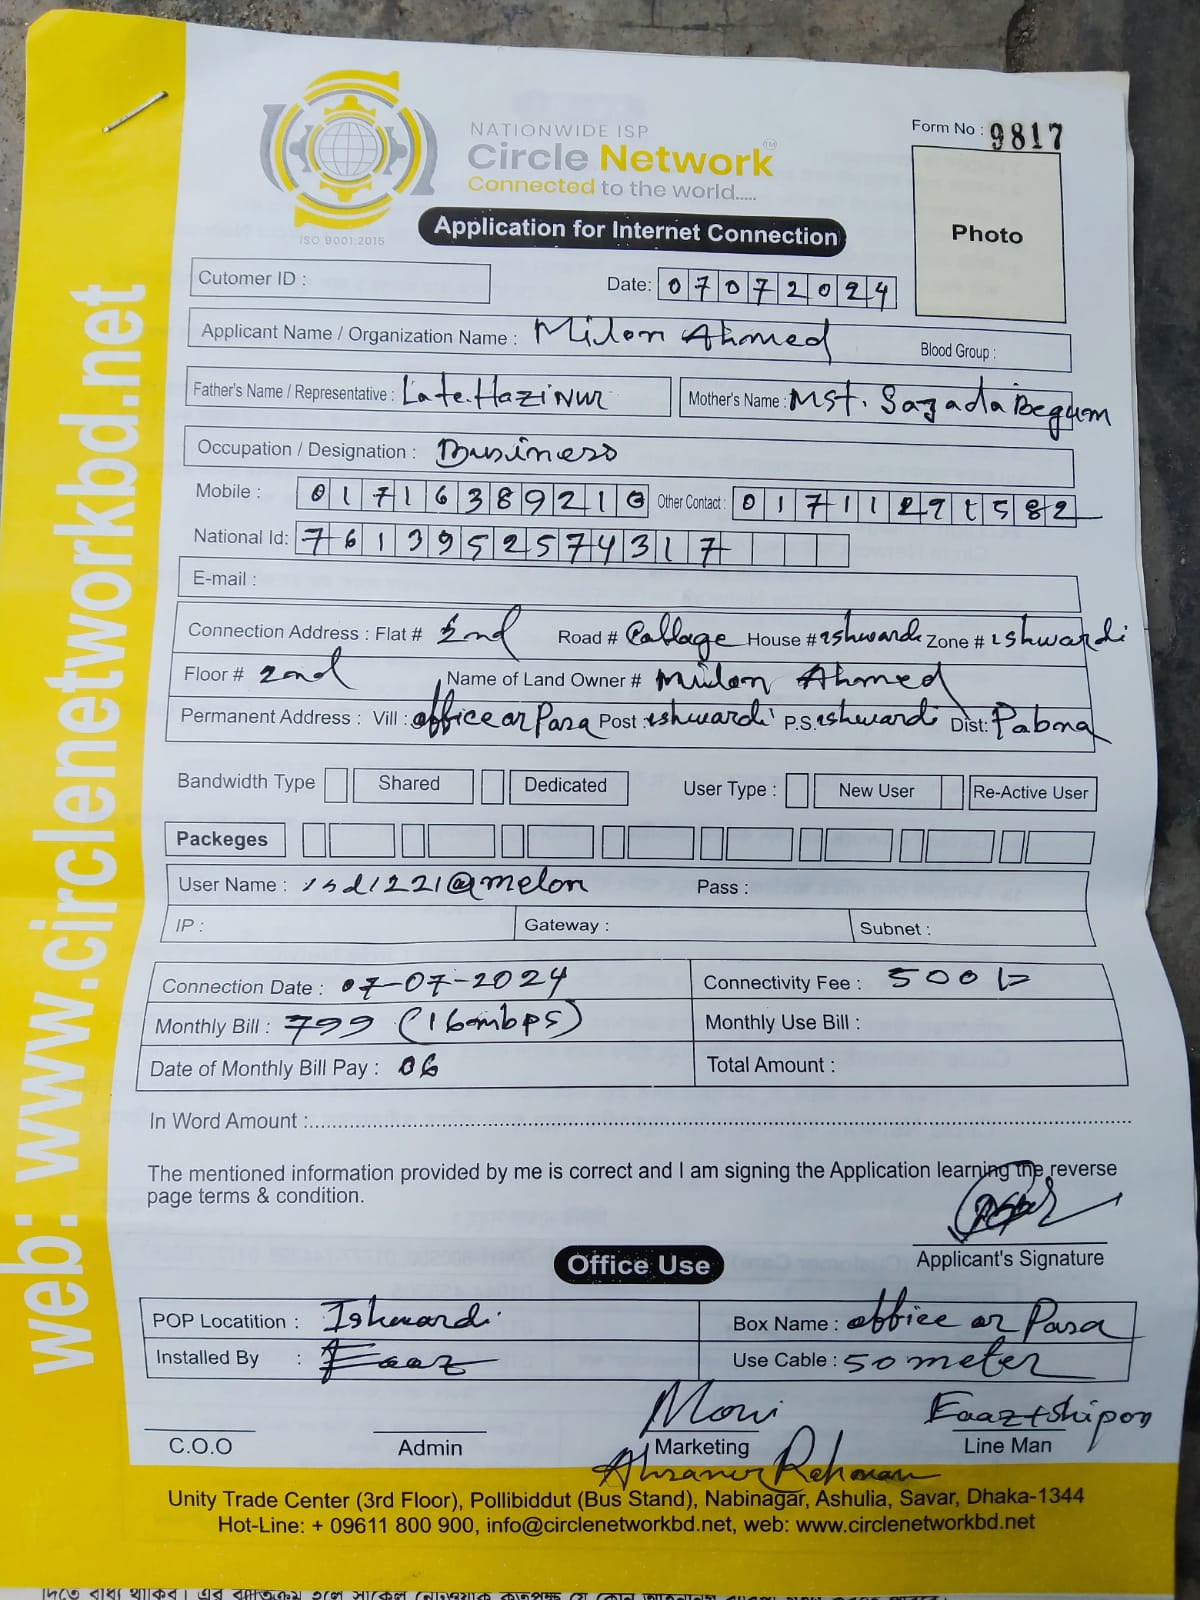 web: www.circlenetworkbd.net
NATIONWIDE ISP
Circle Network
TM
Connected to the world.....
ISO 9001:2015
Form No : 9817
Photo
Application for Internet Connection
Cutomer ID :
Date: 07072024
Applicant Name / Organization Name : Milon Ahmed Blood Group :
Father's Name / Representative : Late. Hazi Nur Mother's Name : Mst. Sazada Begum
Occupation / Designation : Business
Mobile : 01716389210 Other Contact : 01711291582
National Id: 7613952574317
E-mail :
Connection Address : Flat # 2nd Road # Collage House # ishwardi Zone # ishwardi
Floor # 2nd Name of Land Owner # Milon Ahmed
Permanent Address : Vill : office ar Para Post : ishwardi P.S. ishwardi Dist: Pabna
Bandwidth Type Shared Dedicated User Type : New User Re-Active User
Packeges
User Name : isd1221@melon Pass :
IP : Gateway : Subnet :
Connection Date : 07-07-2024 Connectivity Fee : 500/=
Monthly Bill : 799 (16mbps) Monthly Use Bill :
Date of Monthly Bill Pay : 06 Total Amount :
In Word Amount :
The mentioned information provided by me is correct and I am signing the Application learning the reverse
page terms & condition.
Applicant's Signature
Office Use
POP Locatition : Ishwardi Box Name : office ar Para
Installed By : Faaz Use Cable : 50 meter
Moni Faaz+shipon
C.O.O Admin Marketing Line Man
Rahman
Unity Trade Center (3rd Floor), Pollibiddut (Bus Stand), Nabinagar, Ashulia, Savar, Dhaka-1344
Hot-Line: + 09611 800 900, info@circlenetworkbd.net, web: www.circlenetworkbd.net